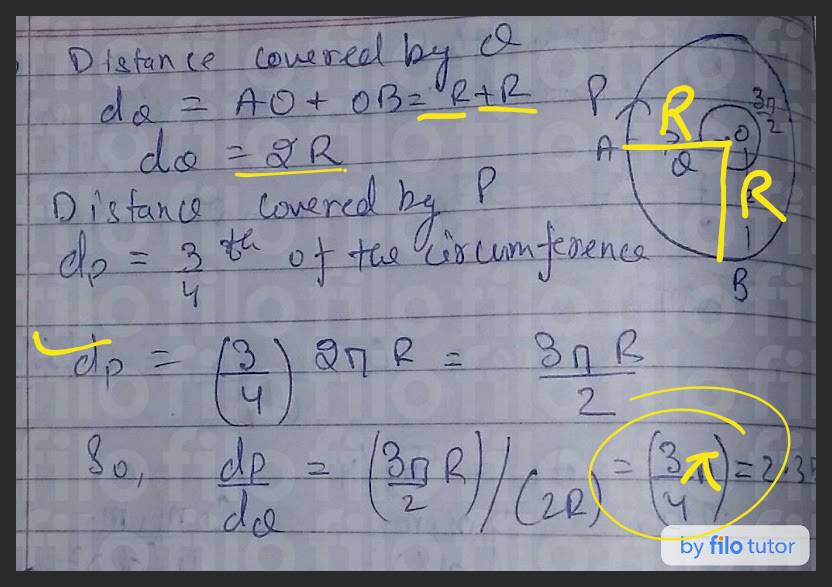 Distance covered by Q
dQ = AO + OB = R + R
dQ = 2R
Distance covered by P
dp = 3/4 th of the circumference
dp = (3/4) 2π R = 3π R/2
So, dp/dQ = (3π/2 R) / (2R) = (3π/4) = 2.3
P
3π/2
R
O
A
Q
R
B
by filo tutor